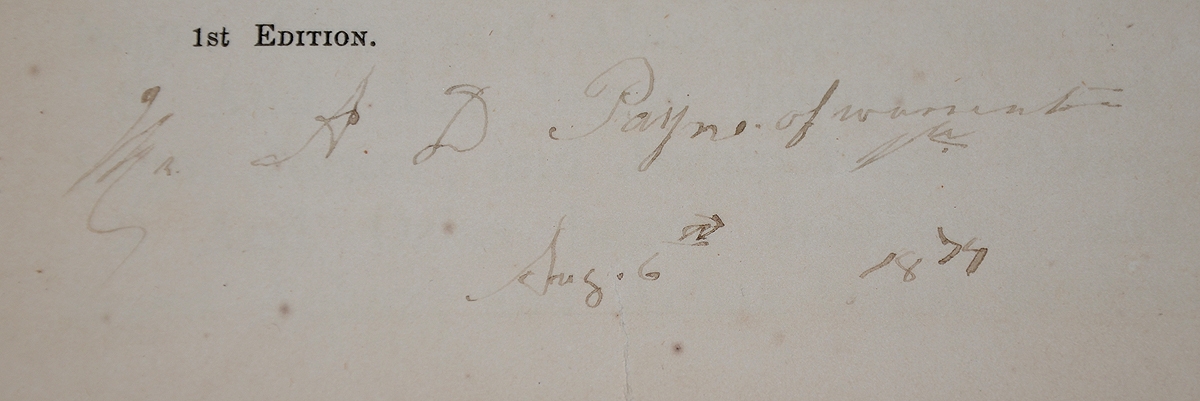 1st EDITION.
Mr. A. D Payne. of warrenton
Va.
Aug. 6th 1874